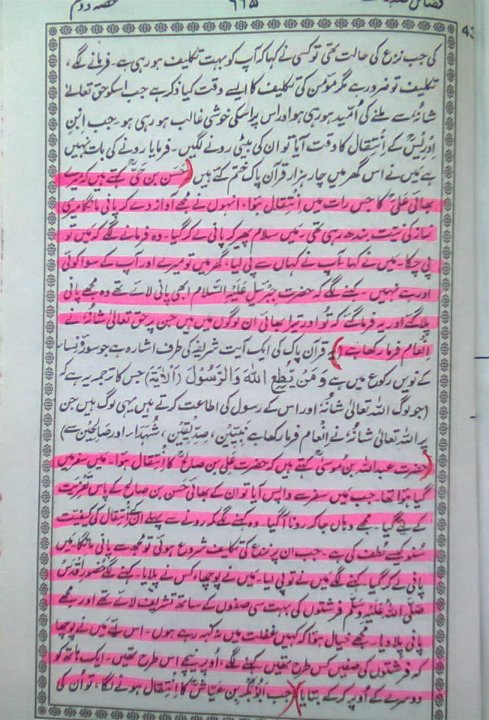 فضائل صدقات ۶۶۵ حصہ دوم
کی جب نزع کی حالت تھی تو کسی نے کہا کہ آپ کو بہت تکلیف ہو رہی ہے۔ فرمانے لگے،
تکلیف تو ضرور ہے مگر مؤمن کی تکلیف کا ایسے وقت کیا ذکر ہے جب اسکو حق تعالیٰ
شانہٗ سے ملنے کی اُمید ہو رہی ہو اور اس پر اسکی خوشی غالب ہو رہی ہو۔ جب ابن
ادریسؒ کے انتقال کا وقت آیا تو ان کی بیٹی رونے لگیں۔ فرمایا رونے کی بات نہیں
ہے میں نے اس گھر میں چار ہزار قرآن پاک ختم کئے ہیں (حسن بن حیؒ کہتے ہیں کہ میرے
بھائی علیؒ کا جس رات میں انتقال ہوا، انہوں نے مجھے آواز دے کر پانی مانگا میری
نماز کی نیت بندھ رہی تھی۔ میں سلام پھیر کر پانی لے گیا۔ وہ فرمانے لگے کہ میں تو
پی چکا۔ میں نے کہا آپ نے کہاں سے پی لیا، گھر میں تو میرے اور آپ کے سوا کوئی
اور ہے نہیں۔ کہنے لگے کہ حضرت جبرئیل علیہ السلام ابھی پانی لائے تھے وہ مجھے پانی
پلا گئے اور یہ فرما گئے کہ تو اور تیرا بھائی ان لوگوں میں ہیں جن پر حق تعالیٰ شانہٗ نے
انعام فرما رکھا ہے) یہ قرآن پاک کی ایک آیت شریفہ کی طرف اشارہ ہے جو سورۂ نساء
کے نویں رکوع میں ہے وَمَنْ يُطِعِ اللهَ وَالرَّسُوْلَ (الآیۃ) جس کا ترجمہ یہ ہے کہ
(جو لوگ اللہ تعالیٰ شانہٗ اور اس کے رسول کی اطاعت کرتے ہیں یہی لوگ ہیں جن
پر اللہ تعالیٰ شانہٗ نے انعام فرما رکھا ہے نبیین، صدیقین، شہداء اور صالحین سے)
(حضرت عبداللہ بن موسیٰؒ کہتے ہیں کہ حضرت علی بن صالحؒ کا انتقال ہوا۔ میں سفر میں
گیا ہوا تھا جب میں سفر سے واپس آیا تو ان کے بھائی حسن بن صالح کے پاس تعزیت
کے لئے گیا۔ مجھے وہاں جا کر رونا آگیا۔ وہ کہنے لگے کہ رونے سے پہلے ان کے انتقال کی کیفیت
سُنو کیسے لطف کی ہے۔ جب ان پر نزع کی تکلیف شروع ہوئی تو مجھ سے پانی مانگا میں
پانی لے کر گیا۔ کہنے لگے میں نے تو پی لیا۔ میں نے پوچھا کس نے پلایا۔ کہنے لگے حضور اقدس
صلی اللہ علیہ وسلم فرشتوں کی بہت سی صفوں کے ساتھ تشریف لائے تھے اور مجھے
پانی پلا دیا۔ مجھے خیال ہوا کہ کہیں غفلت میں نہ کہہ رہے ہوں۔ اس لئے میں نے پوچھا
کہ فرشتوں کی صفیں کس طرح تھیں کہنے لگے، اوپر نیچے اس طرح تھیں۔ ایک ہاتھ کو
دوسرے کے اُوپر کر کے بتایا) جب ابوبکر بن عیاشؒ کا انتقال ہونے لگا، تو اُن کی